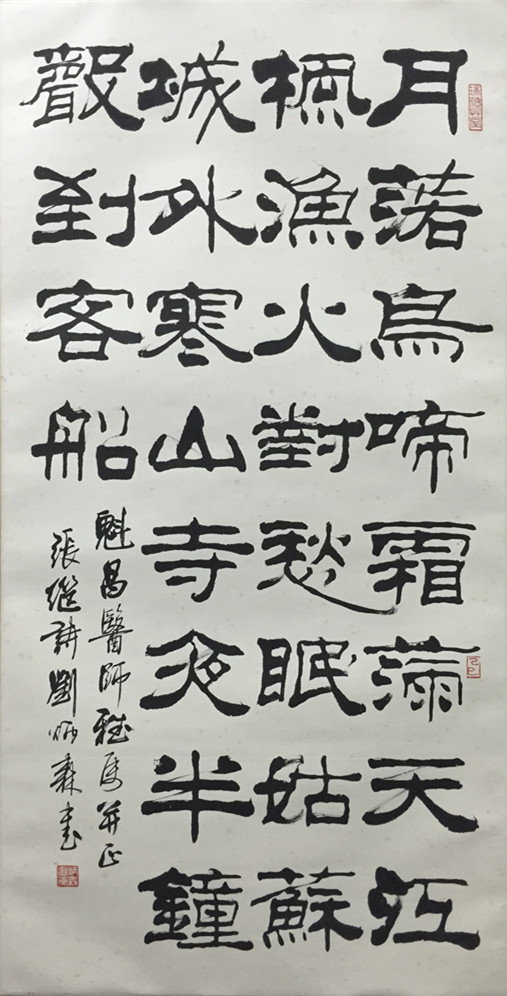 月落烏啼霜滿天江
楓漁火對愁眠姑蘇
城外寒山寺夜半鐘
聲到客船
魁昌醫師雅属并正
張繼詩劉炳森書